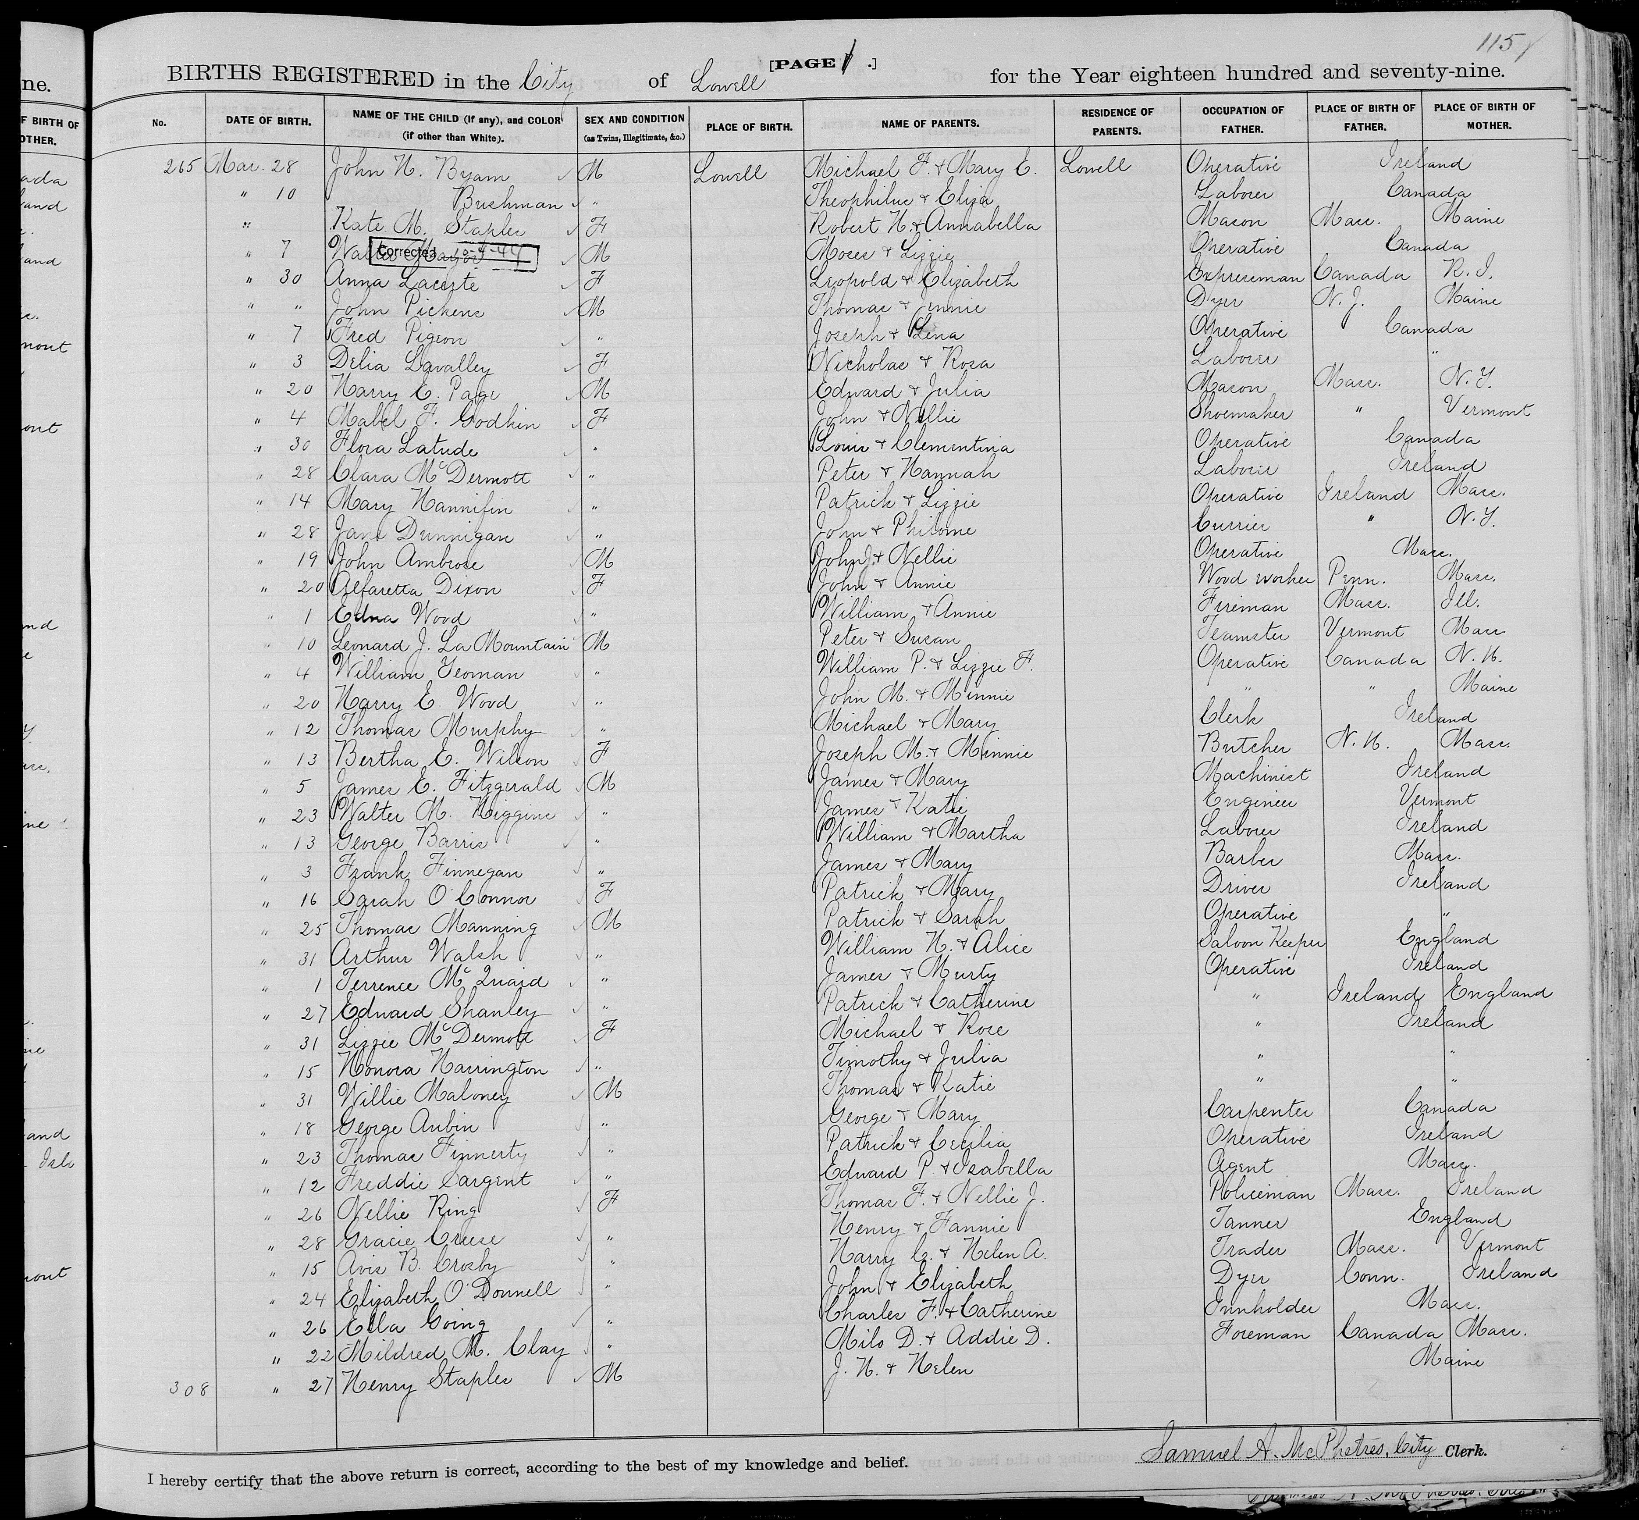 115
BIRTHS REGISTERED in the City of Lowell [PAGE 1 .] for the Year eighteen hundred and seventy-nine.
No. DATE OF BIRTH. NAME OF THE CHILD (if any), and COLOR (if other than White). SEX AND CONDITION (as Twins, Illegitimate, &c.) PLACE OF BIRTH. NAME OF PARENTS. RESIDENCE OF PARENTS. OCCUPATION OF FATHER. PLACE OF BIRTH OF FATHER. PLACE OF BIRTH OF MOTHER.
265 Mar. 28 John H. Byam M Lowell Michael F. & Mary E. Lowell Operative Ireland
" 10 Bushman " Theophilus & Eliza Laborer Canada
" Kate M. Staples F Robert H. & Annabella Mason Mass. Maine
" 7 Corrected M Moses & Lizzie Operative Canada
" 30 Anna Lacoste F Leopold & Elizabeth Expressman Canada R. I.
" " John Pickens M Thomas & Jennie Dyer N. J. Maine
" 7 Fred Pigeon " Joseph & Lena Operative Canada
" 3 Delia Lavalley F Nicholas & Rosa Laborer "
" 20 Harry E. Page M Edward & Julia Mason Mass. N. Y.
" 4 Mabel F. Godkin F John & Nellie Shoemaker " Vermont
" 30 Flora Latude " Louis & Clementina Operative Canada
" 28 Clara McDermott " Peter & Hannah Laborer Ireland
" 14 Mary Hannifin " Patrick & Lizzie Operative Ireland Mass.
" 28 Jane Dunnigan " John & Philome Currier " N. Y.
" 19 John Ambrose M John J. & Nellie Operative Mass.
" 20 Alfaretta Dixon F John & Annie Wood worker Penn. Mass.
" 1 Edna Wood " William & Annie Fireman Mass. Ill.
" 10 Leonard J. La Mountain M Peter & Susan Teamster Vermont Mass
" 4 William Yeoman " William P. & Lizzie F. Operative Canada N. H.
" 20 Harry E Wood " John M. & Minnie " " Maine
" 12 Thomas Murphy " Michael & Mary Clerk Ireland
" 13 Bertha E. Wilson F Joseph M. & Minnie Butcher N. H. Mass.
" 5 James E. Fitzgerald M James & Mary Machinist Ireland
" 23 Walter M. Higgins " James & Katie Engineer Vermont
" 13 George Barris " William & Martha Laborer Ireland
" 3 Frank Finnegan " James & Mary Barber Mass.
" 16 Sarah O'Connor F Patrick & Mary Driver Ireland
" 25 Thomas Manning M Patrick & Sarah Operative "
" 31 Arthur Walsh " William H. & Alice Saloon Keeper England
" 1 Terrence McQuaid " James & Murty Operative Ireland
" 27 Edward Shanley " Patrick & Catherine " Ireland England
" 31 Lizzie McDermott F Michael & Rose " Ireland
" 15 Honora Harrington " Timothy & Julia " "
" 31 Willie Maloney M Thomas & Katie " "
" 18 George Aubin " George & Mary Carpenter Canada
" 23 Thomas Finnerty " Patrick & Cecilia Operative Ireland
" 12 Freddie Sargent " Edward P. & Isabella Agent Mass.
" 26 Nellie King F Thomas F. & Nellie J. Policeman Mass. Ireland
" 28 Gracie Cruse " Henry & Fannie Tanner England
" 15 Avis B. Crosby " Harry C. & Helen A. Trader Mass. Vermont
" 24 Elizabeth O'Donnell " John & Elizabeth Dyer Conn. Ireland
" 26 Ella Going " Charles F. & Catherine Innholder Mass.
" 22 Mildred M. Clay " Milo D. & Addie D. Foreman Canada Mass.
308 " 27 Henry Staples M J. H. & Helen Maine
I hereby certify that the above return is correct, according to the best of my knowledge and belief. Samuel A. McPhetres, City Clerk.